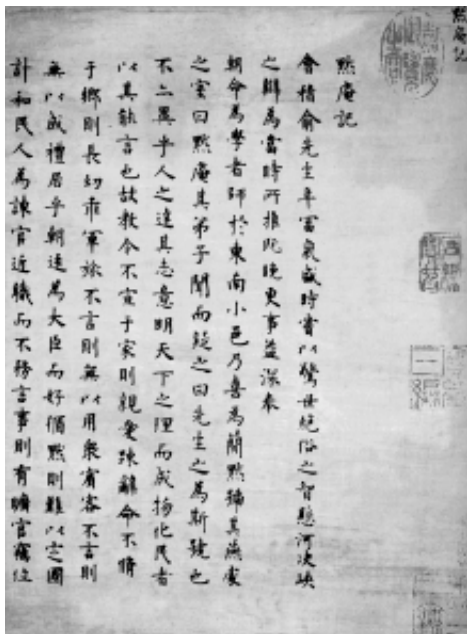 默庵記
默庵記
會稽俞先生年富氣盛時嘗以驚世絕俗之智懸河決峽
之辯為當時所推既晚更事益深奉
朝命為學者師於東南小邑乃喜為簡默猶其燕處
之室曰默庵其弟子聞而疑之曰先生之為斯號也
不亦異乎人之達其志意明天下之理而成揚化民者
以其能言也故教令不宣于家則親愛疎離命不脩
于鄉則長幼乖軍旅不言則無以用衆賓客不言則
無以成禮居乎朝廷為大臣而好循默則難以定國
計和民人為諫官近職而不務言事則有曠官竊位